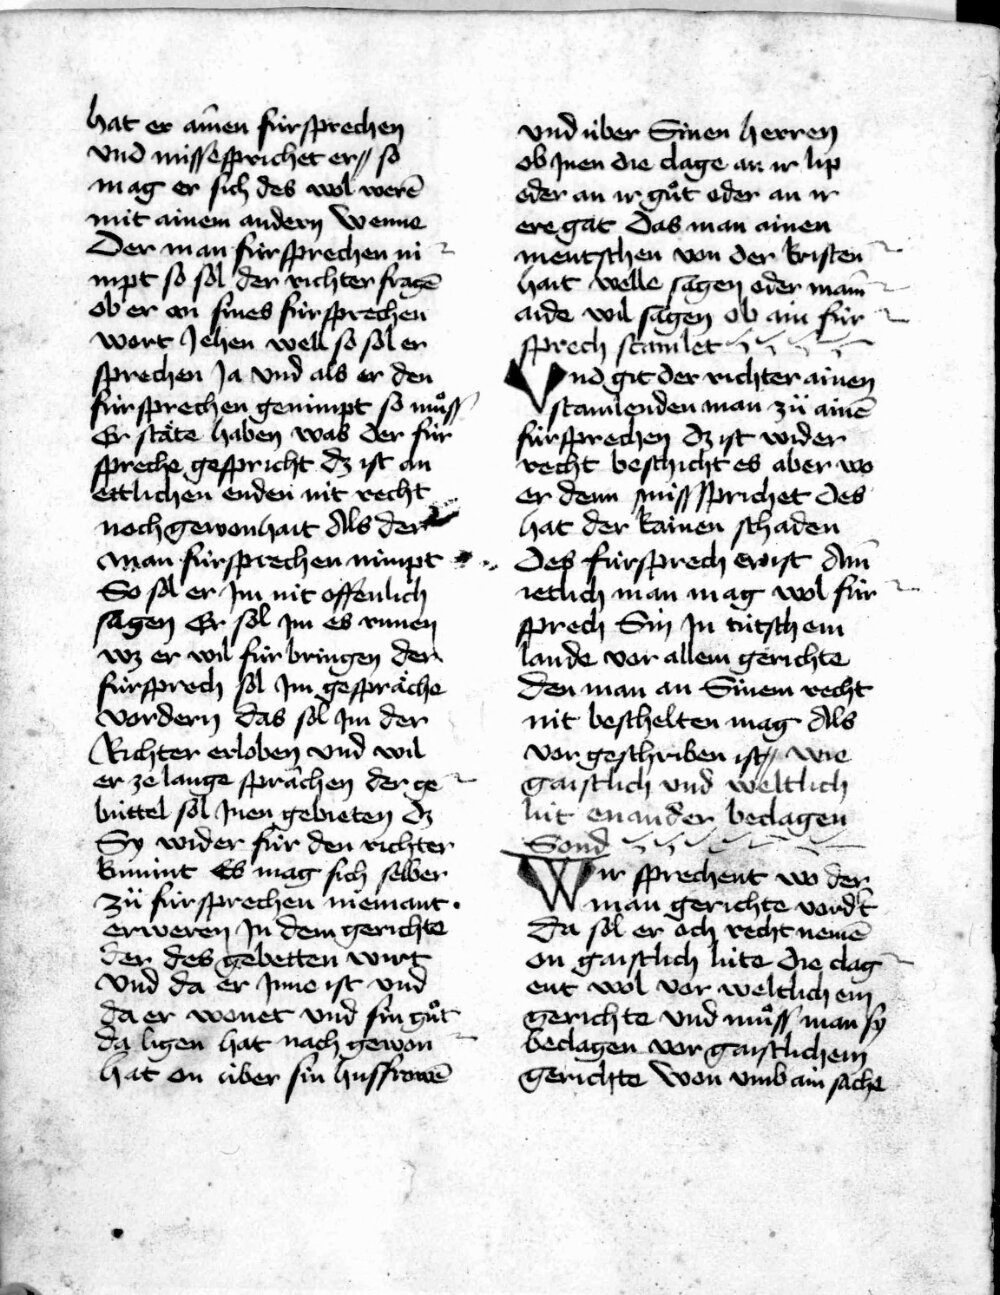 hat er ainen fürsprechen
vnd missesprichet er// so
mag er sich des wol werē
mit ainem andern Wenne
Der man fürsprechen ni
mpt so sol der richter fragē
ob er an sines fürsprechen
wort Jehen well so sol er
sprechen Ja vnd als er den
fürsprechen genimpt so můss
Er stäte haben was der für
spreche gespricht dz ist an
ettlichen enden nit recht
noch gewonhait Als der
man fürsprechen nimpt
So sol er Im nit offenlich
sagen Er sol Im es runen
wz er wil für bringen der
fürsprech sol Im gespräche
vordern das sol Im der
Richter erloben vnd wil
er ze lange sprächen der ge
büttel sol Inen gebieten dz
Sy wider für den richter
kumint Es mag sich selber
zü fürsprechen niemant
erweren In dem gerichte
der des gebetten wirt
vnd da er Inne ist vnd
da er wonet vnd sin gůt
da ligen hat nach gewon
hat on über sin husfrowē
vnd über Sinen herren
ob Inen die clage an ir lip
oder an ir gůt oder an ir
ere gat Das man ainen
mentschen von der kristen
hait welle sagen oder main
aide wil sagen ob ain für
sprech stamlet
Vnd git der richter ainen
stamlenden man zü ainē
fürsprechen dz ist wider
recht beschicht es aber wo
er denn misssprichet des
hat der kainen schaden
Des fürsprech er ist Ain
ietlich man mag wol für
sprech Sin In tütschem
lande vor allem gerichte
den man an Sinem recht
nit beschelten mag Als
vor geschriben ist// wie
gaistlich vnd weltlich
lüt enander beclagen
Sond
Wir sprechent wo der
man gerichte vordt
Da sol er och recht nemē
on gaistlich lüte die clag
ent wol vor weltlichem
gerichte vnd můss man sy
beclagen vor gaistlichem
gerichte Won vmb ain sache